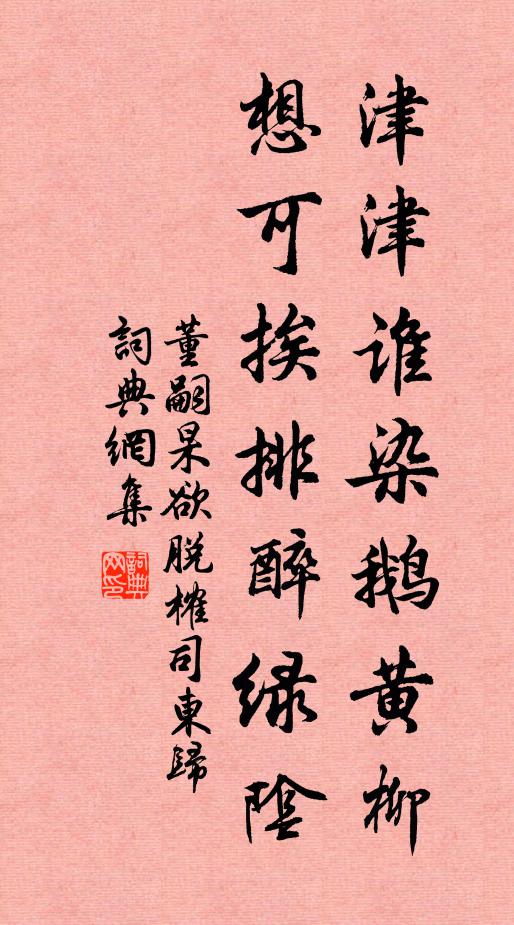 津津谁染鹅黄柳
想可挨排醉绿陰
董嗣杲欲脱榷司東歸
詞典網集
詞典网印